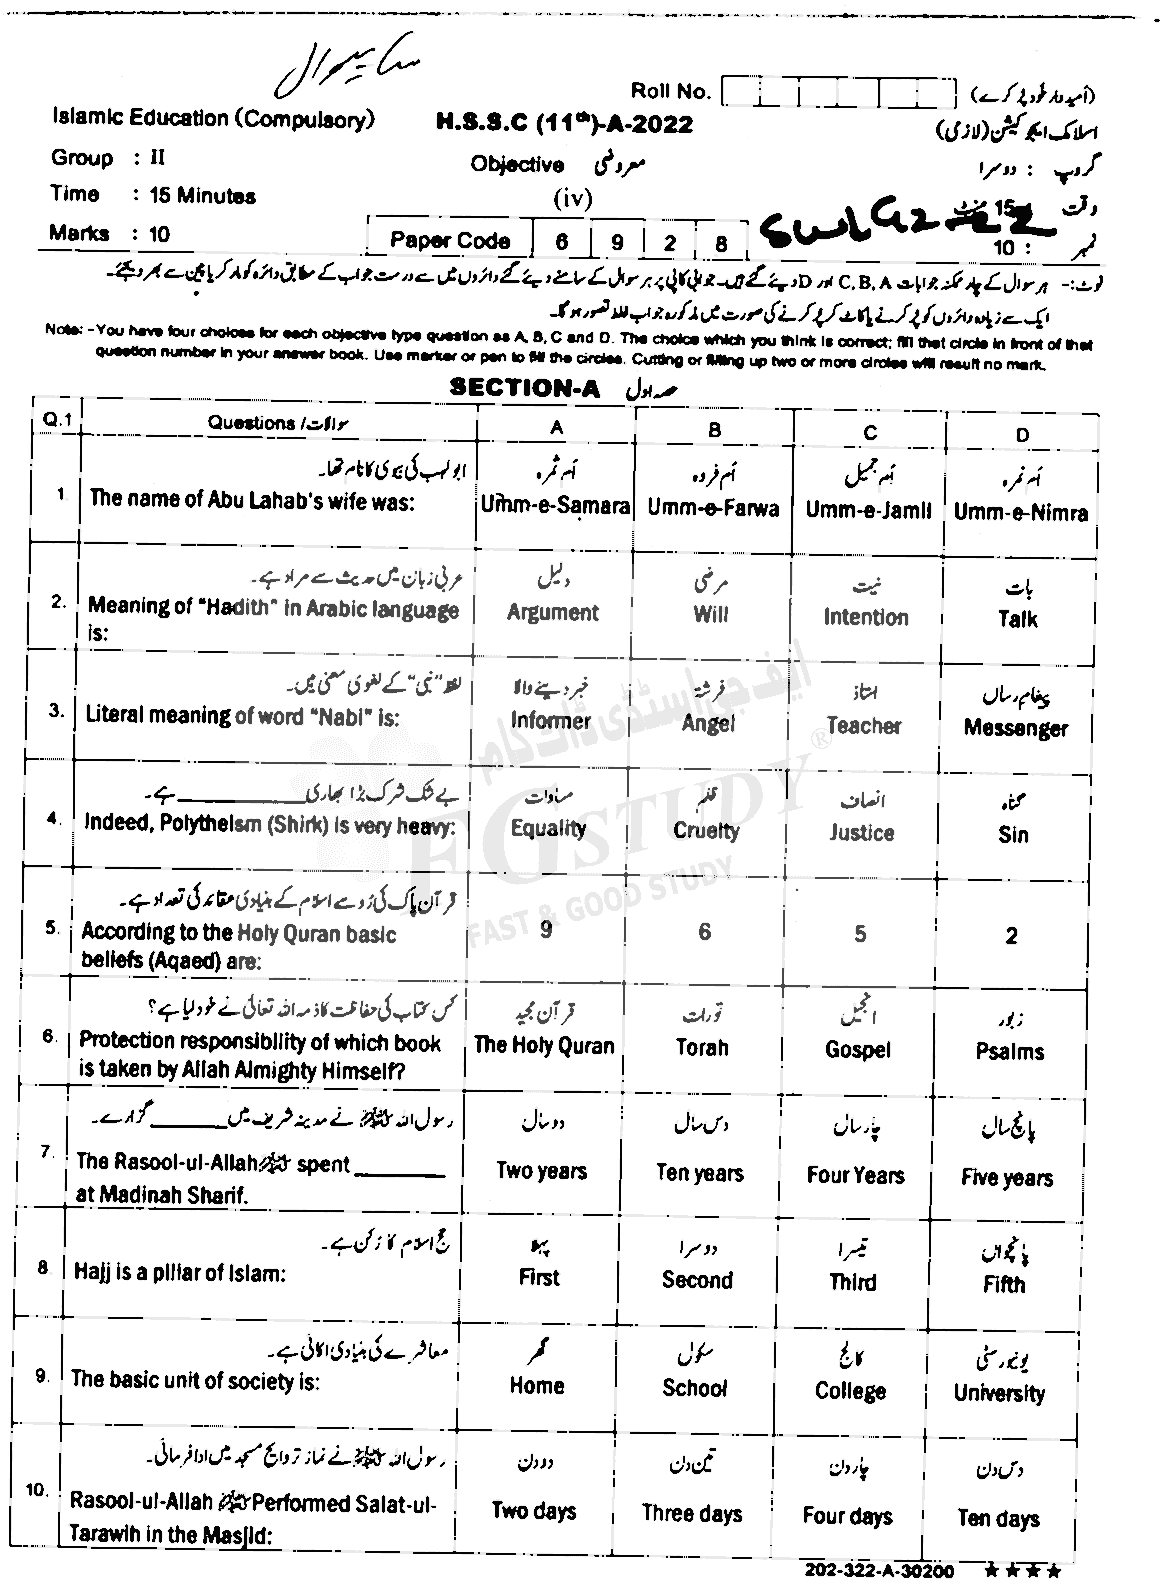 ساہیوال
Roll No. (امیدوار خود پُر کرے)
Islamic Education (Compulsory) H.S.S.C (11th)-A-2022 اسلامک ایجوکیشن (لازمی)
Group : II Objective معروضی گروپ : دوسرا
Time : 15 Minutes (iv) وقت 15 منٹ
Marks : 10 Paper Code 6 9 2 8 نمبر : 10
نوٹ:- ہر سوال کے چار ممکنہ جوابات A ،B ،C اور D دیئے گئے ہیں۔ جوابی کاپی پر ہر سوال کے سامنے دیئے گئے دائروں میں سے درست جواب کے مطابق دائرہ کو مارکر یا پین سے بھر دیجئے۔
ایک سے زیادہ دائروں کو پُر کرنے یا کاٹ کر پُر کرنے کی صورت میں مذکورہ جواب غلط تصور ہو گا۔
Note: -You have four choices for each objective type question as A, B, C and D. The choice which you think is correct; fill that circle in front of that
question number in your answer book. Use marker or pen to fill the circles. Cutting or filling up two or more circles will result no mark.
SECTION-A حصہ اول
Q.1 Questions / سوالات A B C D
ابولہب کی بیوی کا نام تھا۔ اُم ثمرہ اُم فروہ اُم جمیل اُم نمرہ
1 The name of Abu Lahab's wife was: Umm-e-Samara Umm-e-Farwa Umm-e-Jamil Umm-e-Nimra
عربی زبان میں حدیث سے مراد ہے۔ دلیل مرضی نیت بات
2. Meaning of "Hadith" in Arabic language Argument Will Intention Talk
is:
لفظ "نبی" کے لغوی معنی ہیں۔ خبر دینے والا فرشتہ استاذ پیغام رساں
3. Literal meaning of word "Nabi" is: Informer Angel Teacher Messenger
بے شک شرک بڑا بھاری ________ ہے۔ مساوات ظلم انصاف گناہ
4. Indeed, Polytheism (Shirk) is very heavy: Equality Cruelty Justice Sin
قرآن پاک کی رُو سے اسلام کے بنیادی عقائد کی تعداد ہے۔
5. According to the Holy Quran basic 9 6 5 2
beliefs (Aqaed) are:
کس کتاب کی حفاظت کا ذمہ اللہ تعالیٰ نے خود لیا ہے؟ قرآن مجید تورات انجیل زبور
6. Protection responsibility of which book The Holy Quran Torah Gospel Psalms
is taken by Allah Almighty Himself?
رسول اللہ ﷺ نے مدینہ شریف میں ______ گزارے۔ دو سال دس سال چار سال پانچ سال
7. The Rasool-ul-Allah ﷺ spent ________ Two years Ten years Four Years Five years
at Madinah Sharif.
حج اسلام کا رُکن ہے۔ پہلا دوسرا تیسرا پانچواں
8 Hajj is a pillar of Islam: First Second Third Fifth
معاشرے کی بنیادی اکائی ہے۔ گھر سکول کالج یونیورسٹی
9. The basic unit of society is: Home School College University
رسول اللہ ﷺ نے نماز تراویح مسجد میں ادا فرمائی۔ دو دن تین دن چار دن دس دن
10. Rasool-ul-Allah ﷺ Performed Salat-ul- Two days Three days Four days Ten days
Tarawih in the Masjid:
202-322-A-30200 ★★★★
ایف جی اسٹڈی ڈاٹ کام
FG STUDY ®
FAST & GOOD STUDY